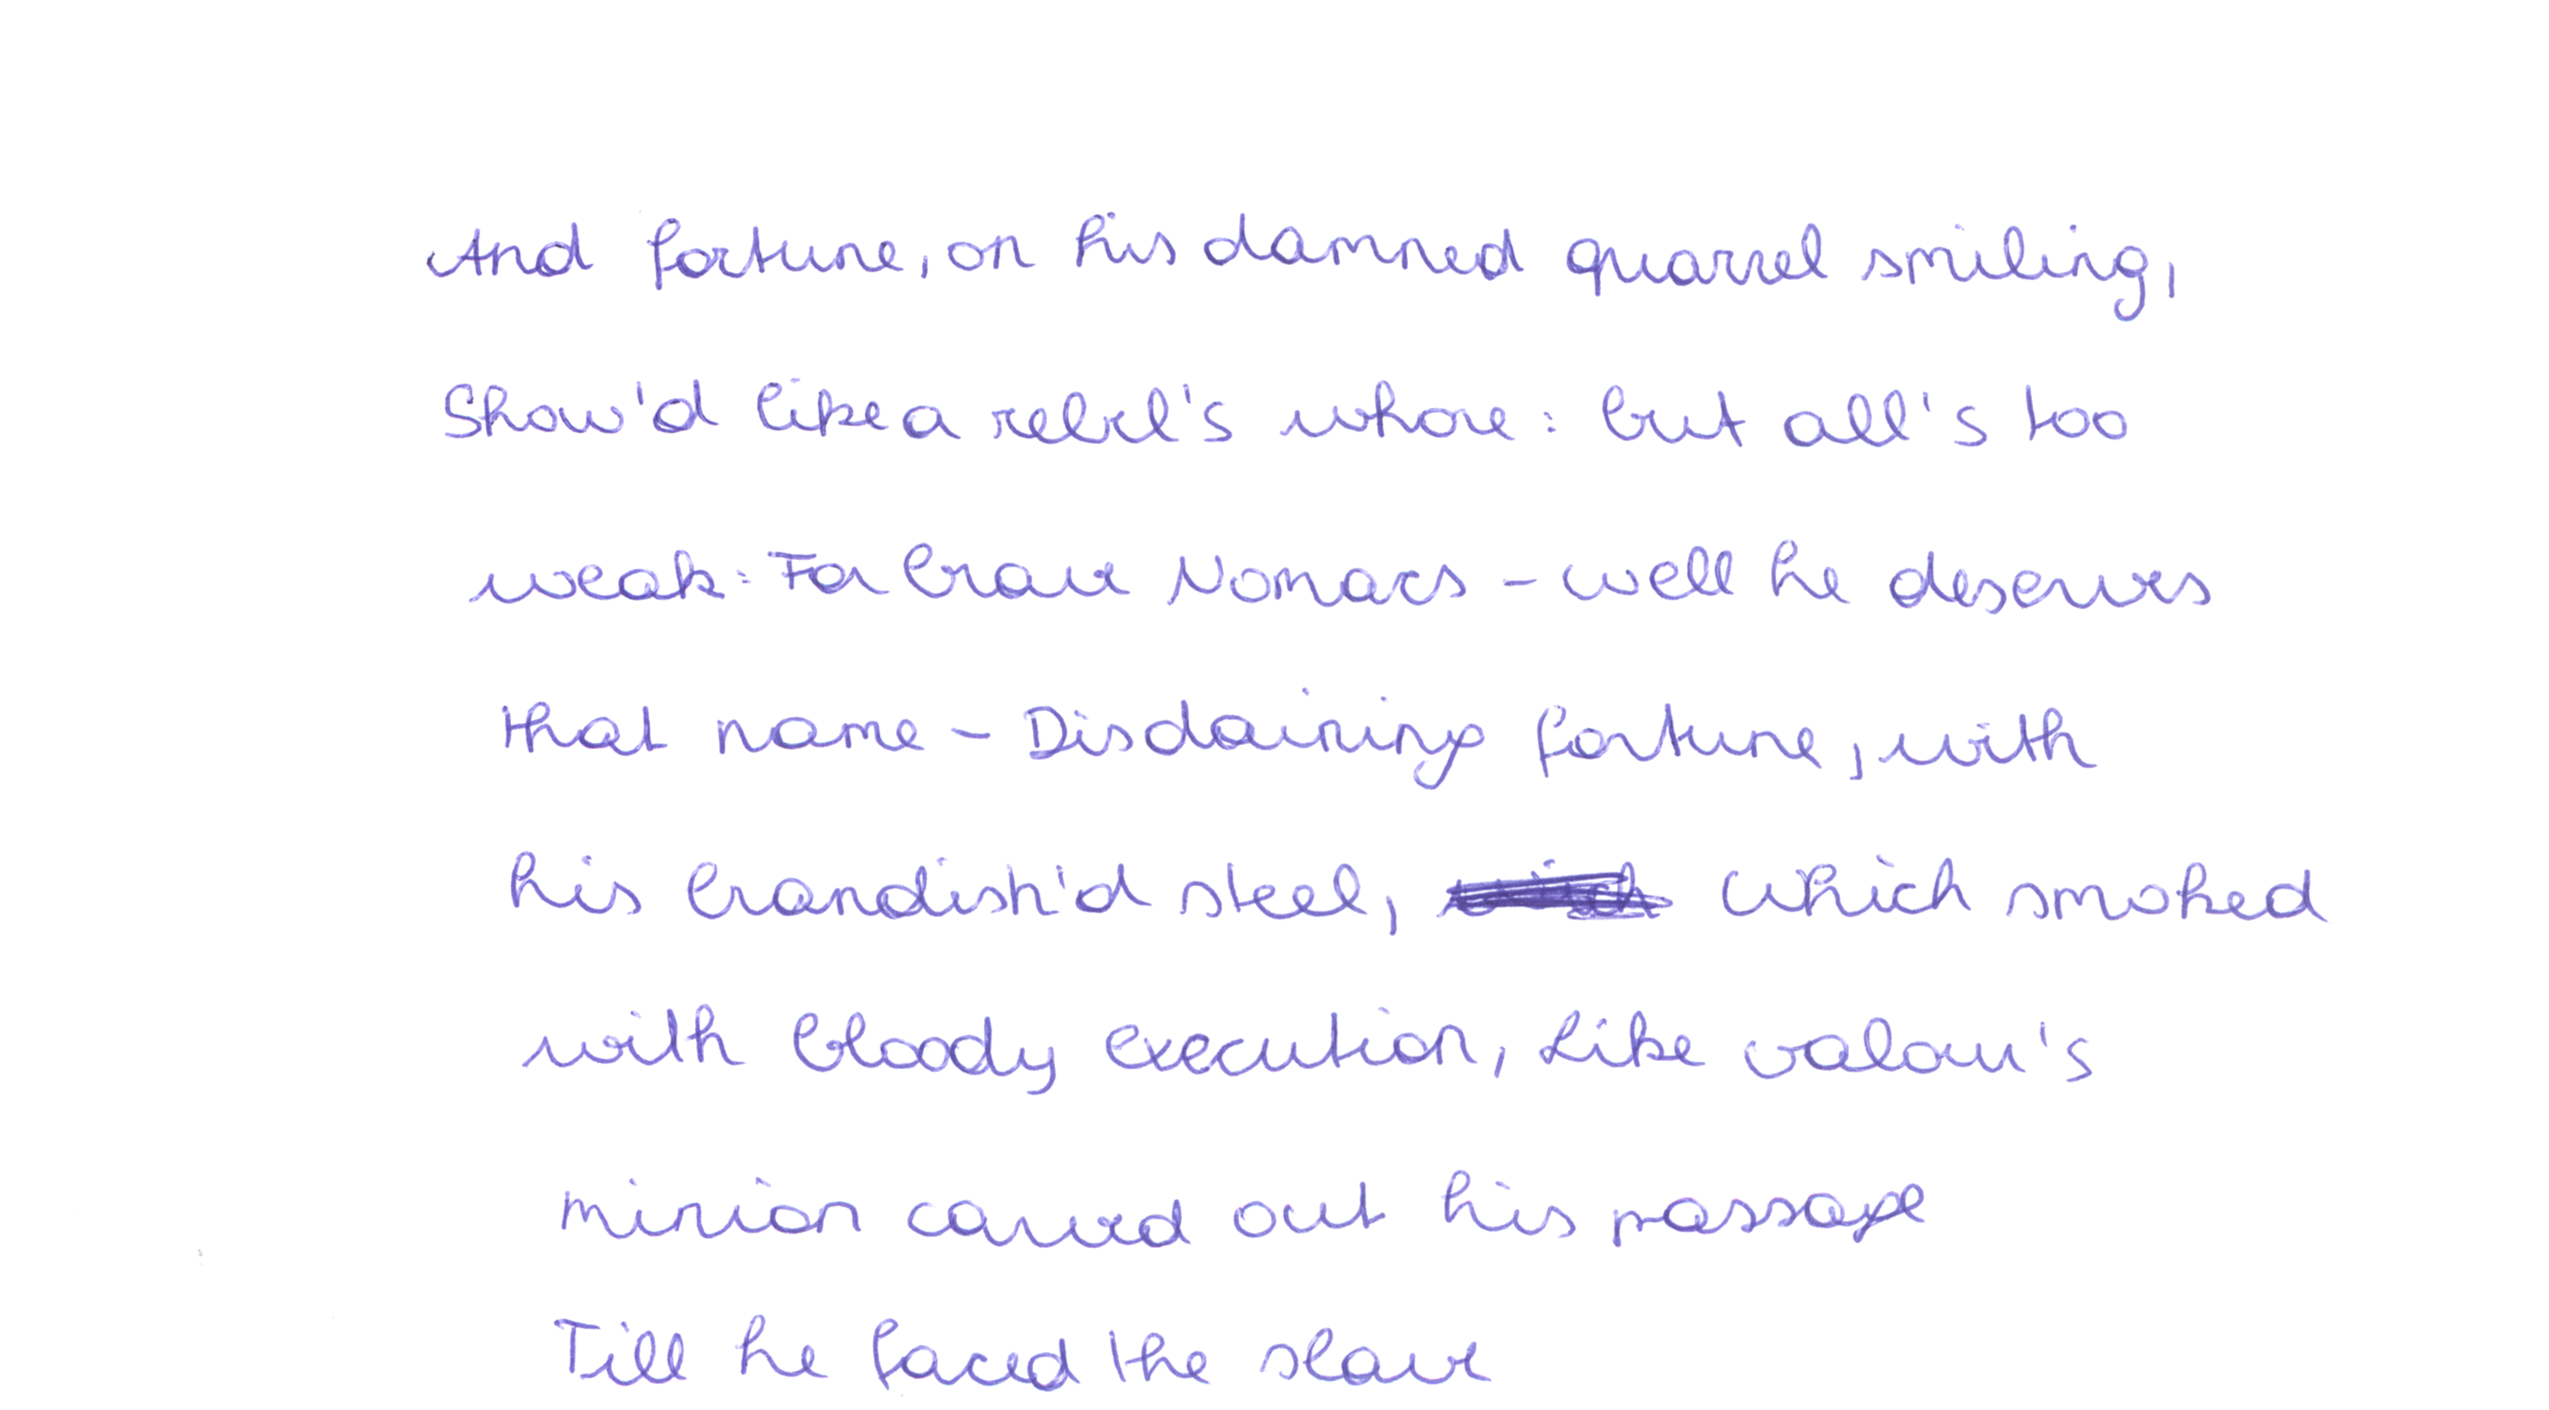 And fortune, on his damned quarrel smiling,
Show'd like a rebel's whore: but all's too
weak: For brave Nomacs - well he deserves
that name - Disdaining fortune, with
his brandish'd steel, which smoked
with bloody execution, Like valour's
minion carved out his passage
Till he faced the slave